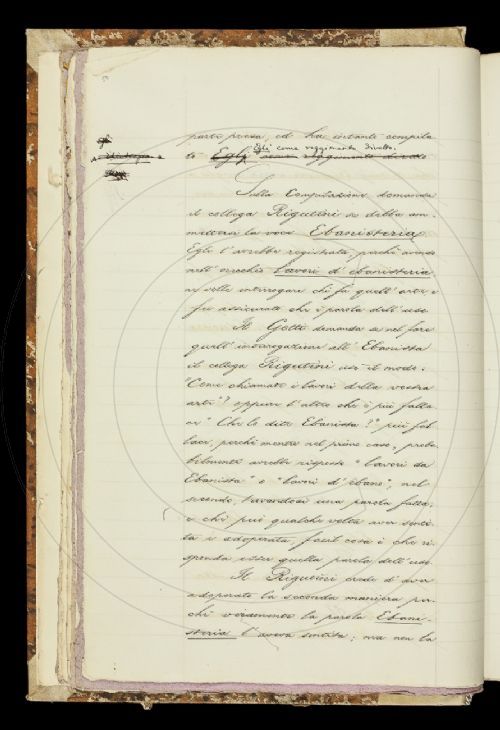 parte presa, ed ha intanto compila-
Egli come raggiunto divalto.
to Egli
Sulla Compilazione domanda
il collega Rigutini se debba am-
mettersi la voce Ebanisteria.
Egli l'avrebbe registrata, perchè avendo
nell'orecchio lavori d'ebanisteria
ne volle interrogare chi fa quell'arte e
fu assicurato che è parola dell'uso.
Il Gotti domanda se nel fare
quell'interrogazione all'Ebanista
il collega Rigutini usò il modo:
"Come chiamate i lavori della vostra
arte"? oppure l'altro che è più falla-
ce "Che lo dite Ebanista?" più fal-
lace, perchè mentre nel primo caso, proba-
bilmente avrebbe risposto "lavori da
Ebanista" o "lavori d'ebano", nel
secondo, trovandosi una parola fatta,
e che può qualche volta aver senti-
ta e adoperata, facil cosa è che ri-
sponda esser quella parola dell'uso.
Il Rigutini crede d'aver
adoperato la seconda maniera per-
chè veramente la parola Ebani-
steria l'aveva sentita; ma non la